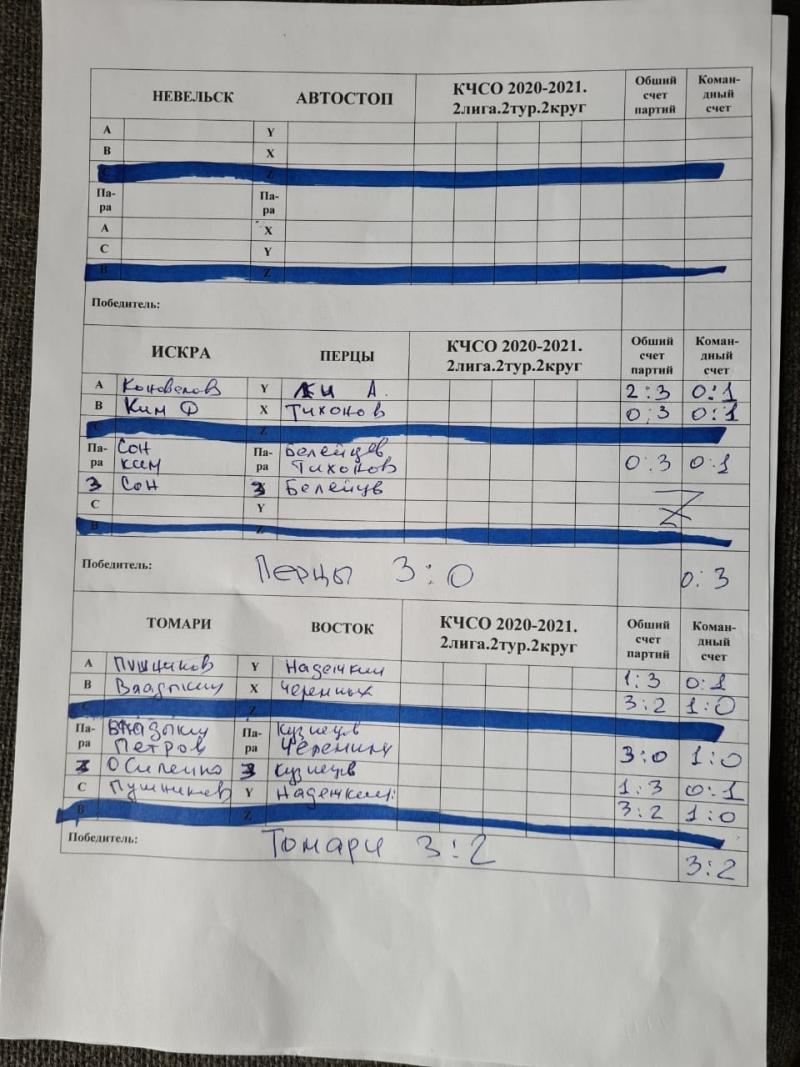 НЕВЕЛЬСК АВТОСТОП КЧСО 2020-2021. 2лига.2тур.2круг Обший счет партий Коман-дный счет
A Y
B X
C Z
Па-ра Па-ра
A X
C Y
B Z
Победитель:
ИСКРА ПЕРЦЫ КЧСО 2020-2021. 2лига.2тур.2круг Обший счет партий Коман-дный счет
A Коновалов Y А. 2:3 0:1
B Ким Ф X Тихонов 0:3 0:1
Z
Па-ра Сон Ким Па-ра Белейцев Тихонов 0:3 0:1
3 Сон 3 Белейцв
C Y Z
B
Победитель: Перцы 3:0 0:3
ТОМАРИ ВОСТОК КЧСО 2020-2021. 2лига.2тур.2круг Обший счет партий Коман-дный счет
A Пушников Y Надежкин 1:3 0:1
B X Черенных 3:2 1:0
C Z
Па-ра Петров Па-ра Кузнецв 3:0 1:0
Осипенко 3 Кузнецв 1:3 0:1
C Пушников Y Надежкин 3:2 1:0
B Z
Победитель: Томари 3:2 3:2